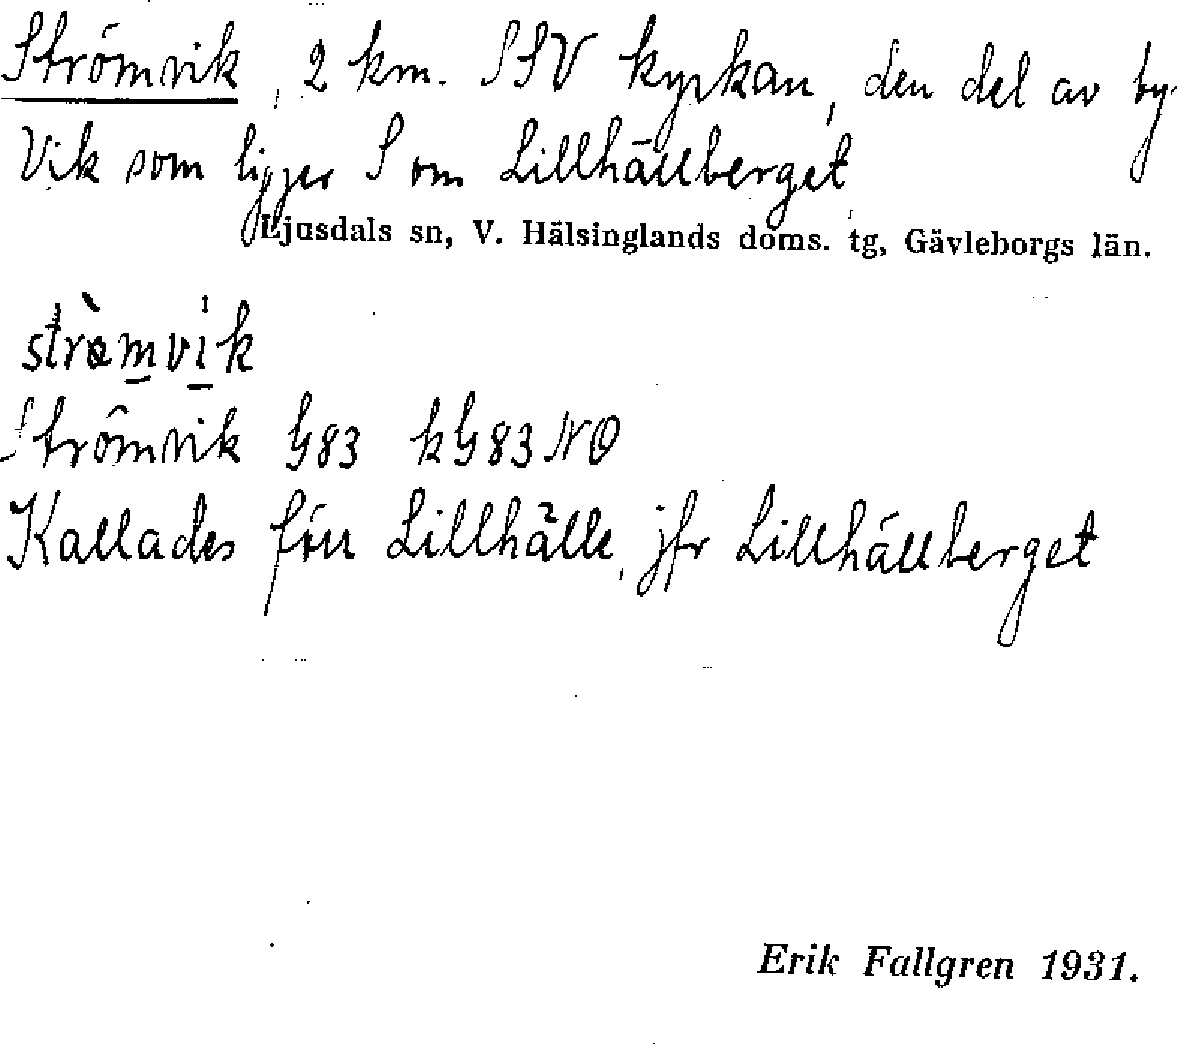 Strömvik, 2 km. SSV kyrkan, den del av by
Vik som ligger S om Lillhällberget
Ljusdals sn, V. Hälsinglands doms. tg, Gävleborgs län.
Strömvik G83 kG83NO
Kallades förr Lillhälle, jfr Lillhällberget
Erik Fallgren 1931.